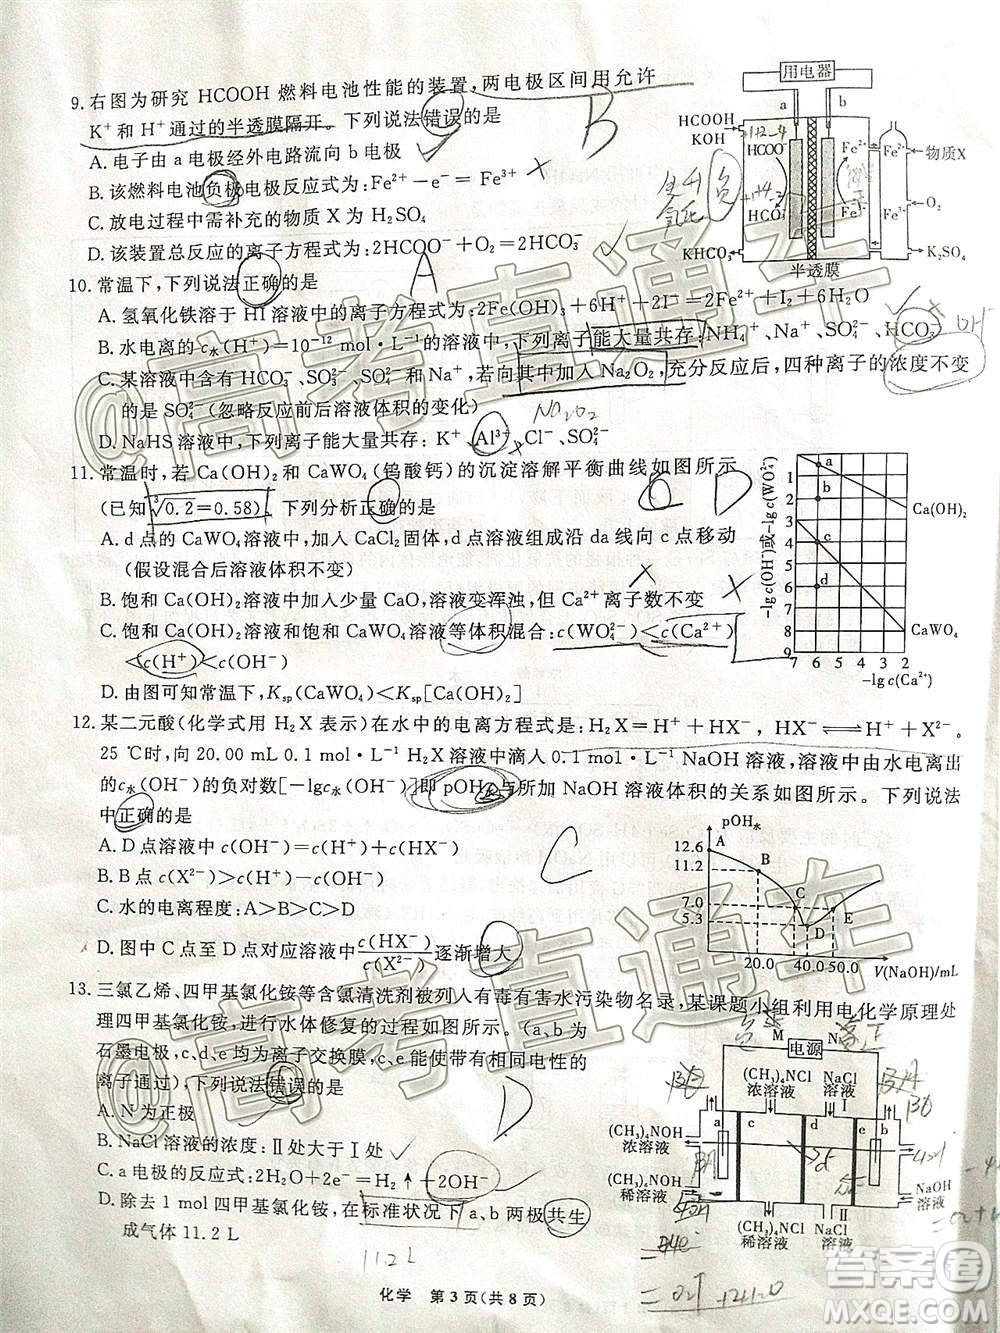 9. 右图为研究 HCOOH 燃料电池性能的装置,两电极区间用允许
K⁺和 H⁺通过的半透膜隔开。下列说法错误的是
A. 电子由 a 电极经外电路流向 b 电极
B. 该燃料电池负极电极反应式为:Fe²⁺−e⁻=Fe³⁺
C. 放电过程中需补充的物质 X 为 H₂SO₄
D. 该装置总反应的离子方程式为:2HCOO⁻+O₂=2HCO₃⁻
用电器
a
b
HCOOH
KOH
HCOO⁻
HCO₃⁻
KHCO₃
半透膜
Fe²⁺
Fe³⁺
Fe²⁺
Fe³⁺
物质X
O₂
K₂SO₄
B
负
10. 常温下,下列说法正确的是
A. 氢氧化铁溶于 HI 溶液中的离子方程式为:2Fe(OH)₃+6H⁺+2I⁻=2Fe²⁺+I₂+6H₂O
B. 水电离的 c水(H⁺)=10⁻¹² mol·L⁻¹的溶液中,下列离子能大量共存:NH₄⁺、Na⁺、SO₄²⁻、HCO₃⁻
C. 某溶液中含有 HCO₃⁻、SO₃²⁻、CO₃²⁻和 Na⁺,若向其中加入 Na₂O₂,充分反应后,四种离子的浓度不变
的是 SO₄²⁻(忽略反应前后溶液体积的变化)
D. NaHS 溶液中,下列离子能大量共存:K⁺、Al³⁺、Cl⁻、SO₄²⁻
A
OH⁻
Na₂O₂
11. 常温时,若 Ca(OH)₂和 CaWO₄(钨酸钙)的沉淀溶解平衡曲线如图所示
(已知∛0.2=0.58)。下列分析正确的是
A. d 点的 CaWO₄溶液中,加入 CaCl₂固体,d 点溶液组成沿 da 线向 c 点移动
(假设混合后溶液体积不变)
B. 饱和 Ca(OH)₂溶液中加入少量 CaO,溶液变浑浊,但 Ca²⁺离子数不变
C. 饱和 Ca(OH)₂溶液和饱和 CaWO₄溶液等体积混合:c(WO₄²⁻)<c(Ca²⁺)
<c(H⁺)<c(OH⁻)
D. 由图可知常温下,Ksp(CaWO₄)<Ksp[Ca(OH)₂]
D
−lgc(OH⁻)或−lgc(WO₄²⁻)
1
2
3
4
5
6
7
8
9
7 6 5 4 3 2
−lg c(Ca²⁺)
a
b
c
d
Ca(OH)₂
CaWO₄
12. 某二元酸(化学式用 H₂X 表示)在水中的电离方程式是:H₂X=H⁺+HX⁻,HX⁻⇌H⁺+X²⁻。
25 ℃时,向 20.00 mL 0.1 mol·L⁻¹ H₂X 溶液中滴入 0.1 mol·L⁻¹ NaOH 溶液,溶液中由水电离出
的 c水(OH⁻)的负对数[−lgc水(OH⁻)]即 pOH水与所加 NaOH 溶液体积的关系如图所示。下列说法
中正确的是
A. D 点溶液中:c(H⁺)=c(OH⁻)+c(HX⁻)
B. B 点 c(X²⁻)>c(HX⁻)
C. 水的电离程度:A>B>C>D
D. 图中 C 点至 D 点对应溶液中c(HX⁻)/c(X²⁻)逐渐增大
C
pOH水
12.6
11.2
7.0
5.3
A
B
C
D
E
20.0 40.0 50.0 V(NaOH)/mL
13. 三氯乙烯、四甲基氯化铵等含氯清洗剂被列入有毒有害水污染物名录,某课题小组利用电化学原理处
理四甲基氯化铵,进行水体修复的过程如图所示。(a、b 为
石墨电极,c、d、e 均为离子交换膜,c、e 能使带有相同电性的
离子通过),下列说法错误的是
A. N 为正极
B. NaCl 溶液的浓度:Ⅱ处大于Ⅰ处
C. a 电极的反应式:2H₂O+2e⁻=H₂↑+2OH⁻
D. 除去 1 mol 四甲基氯化铵,在标准状况下 a、b 两极共生
成气体 11.2 L
D
11.2L
M
电源
N
(CH₃)₄NCl
浓溶液
NaCl
溶液
Ⅰ
a
c
d
e
b
(CH₃)₄NOH
浓溶液
(CH₃)₄NOH
稀溶液
(CH₃)₄NCl
稀溶液
Ⅱ
NaCl
溶液
NaOH
溶液
@高考直通车
@高考直通车
答案圈
MXQE.COM
化学 第 3 页(共 8 页)